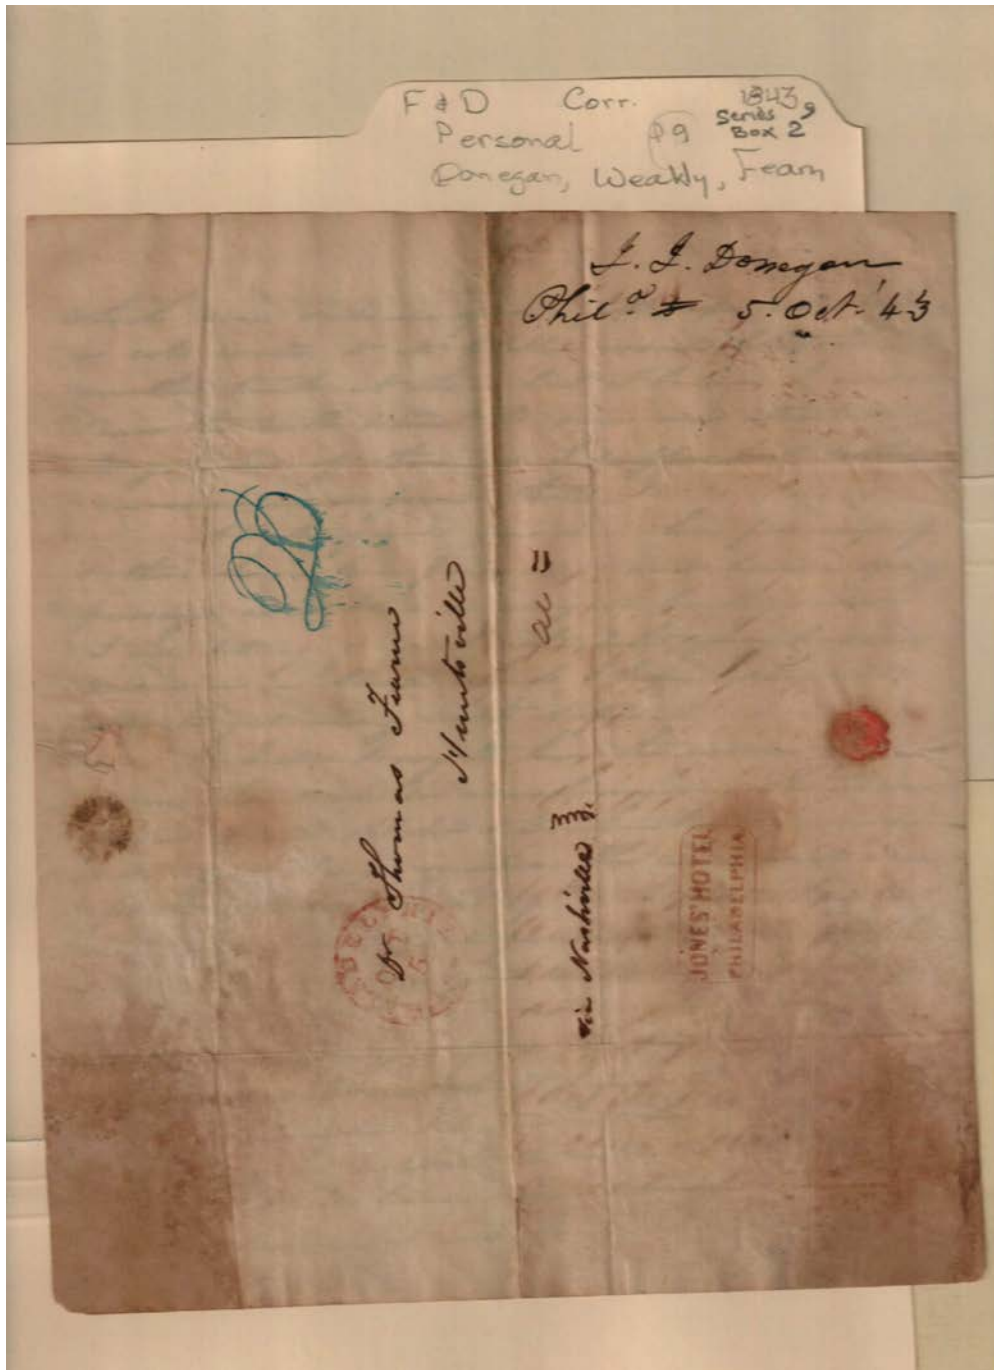 F & D Corr. 1843
Series 9
Personal P9 Box 2
Donegan, Weakly, Fearn
J. J. Donegan
Phil.ª 5. Oct. '43
25
Dr Thomas Fearn
Huntsville
al =
via Nashville
JONES' HOTEL
PHILADELPHIA
OCT
5